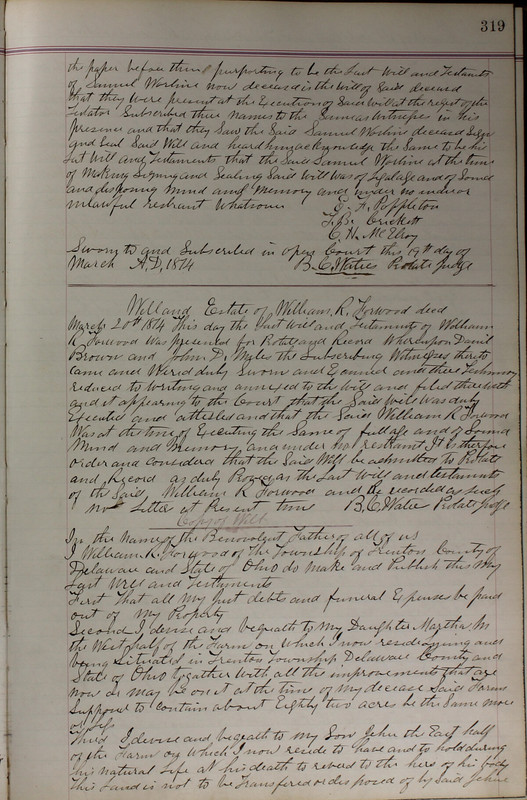 319
the paper before them purporting to be the Last Will and Testament
of Samuel Worline now deceased is the will of Said deceased
that they were present at the Execution of Said will at the request of the
Testator Subscribed their names to the Same as witnesses in his
presence and that they Saw the Said Samuel Worline deceased Sign
and Seal Said Will and heard him acknowledge the Same to be his
Last Will and Testament that the Said Samuel Worline at the time
of Making Signing and Sealing Said Will was of legal age and of Sound
and disposing mind and Memory and under no undue or
unlawful restraint Whatever
E. F. Poppleton
F. B. Crickett
C. H. McElroy
Sworn to and Subscribed in open Court this 19th day of
March A.D. 1874 B. C. Waties Probate Judge
Will and Estate of William R. Forwood decd
March 20th 1874 This day the Last Will and Testament of William
R Forwood was presented for Probate and Record Whereupon Daniel
Brown and John D. Myles the Subscribing Witnesses thereto
Came and Were duly Sworn and Examined and there Testimony
reduced to Writing and annexed to the Will and filed therewith
and it appearing to the Court that the Said Will was duly
Executed and attested and that the Said William R Forwood
Was at the time of Executing the Same of full age and of Sound
Mind and Memory and under no restraint It is therefore
Order and Considered that the Said Will be admitted to Probate
and Record as duly Proven as the Last Will and testament
of the Said William R Forwood and be recorded as Such
no Letter at Present time B. C. Waties Probate Judge
Copy of Will
In the Name of the Benevolent Father of all of us
I William R. Forwood of the Township of Trenton County of
Delaware and State of Ohio do make and Publish this My
Last Will and Testament
First That all my Just debts and funeral Expenses be paid
out of my Property
Second I devise and bequeath to my Daughter Martha M
the West half of the Farm on which I now reside lying and
being Situated in Trenton Township Delaware County and
State of Ohio together with all the improvements that are
now or may be on it at the time of my decease Said Farm
Supposed to contain about Eighty two acres be the Same more
or less
Third I devise and bequeath to my Son John the East half
of the Farm on which I now reside to have and to hold during
his natural Life at his death to revert to the heirs of his body
This Land is not to be Transfered or disposed of by Said John